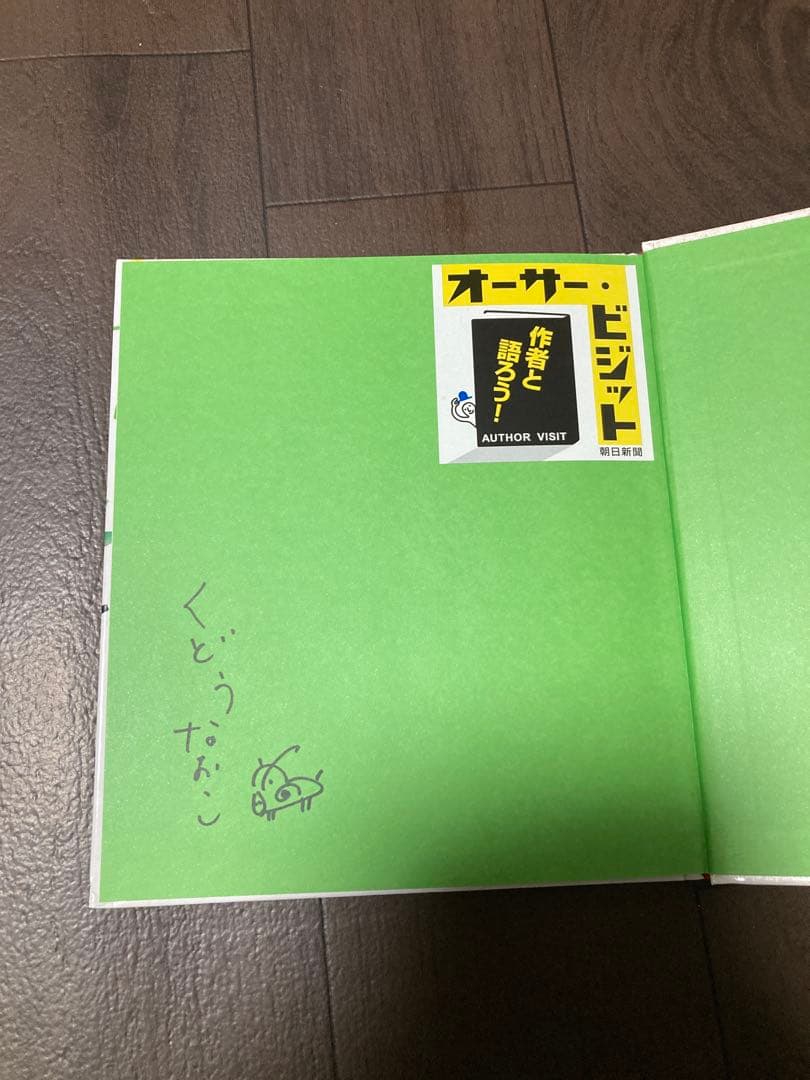 オーサー・
ビジット
作者と
語ろう!
AUTHOR VISIT
朝日新聞
くどう
なおこ